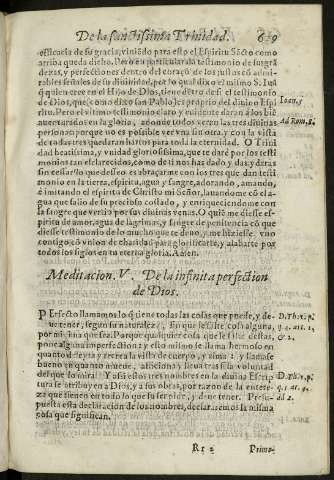 De la sanctissima Trinidad. 619
efficacia de su gracia, viniẽdo para esto el Espiritu Sãcto como
arriba queda dicho. Pero en particular dã testimonio de su grã
deza, y perfectiones dentro del coraçõ de los justos cõ admi-
rables señales de su divinidad, por lo qual dixo el mismo S. Iuã
q̃ quien cree en el Hijo de Dios, tiene dentro de si el testimonio
de Dios, que como dixo san Pablo, es proprio del divino Espi
ritu. Pero el vltimo testimonio claro y euidente daràn a los biẽ
auenturados en la gloria, adonde todos veràn las tres diuinas
personas porque no es possible ver vna sin otra, y con la vista
de todas tres quedaràn hartos para toda la eternidad. O Trini
dad beatissima, y vnidad gloriosissima, que te daré por los testi
monios tan esclarecidos, como de ti nos has dado, y das, y daràs
sin cessar? lo que desseo es abraçarme con los tres que dan testi
monio en la tierra, espiritu, agua y sangre, adorando, amando,
è imitando el espiritu de Christo mi Señor, lauandome cõ el a-
gua que salio de su precioso costado, y enriqueciendome con
la sangre que vertiò por sus divinas venas. O quiẽ me diesse es-
piritu de amor, agua de lagrimas, y sangre de penitencia cõ que
diesse testimonio de lo mucho que te deuo, y me hiziesse vno
contigo, cõ vnion de charidad para glorificarte, y alabarte por
todos los siglos en tu eterna gloria. Amen.
Ioan. 5
Ad Rom. 8.
Meditacion. V. De la infinita perfection
de Dios.
PErfecto llamamos lo q̃ tiene todas las cosas que puede, y de-
ue tener, segun su naturaleza, sin que le falte cosa alguna,
por minima que sea. Porque qualquier cosa que le falte destas,
pone alguna imperfection: y esso mismo se llama hermoso en
quanto deleyta y recrea la vista de cuerpo, y alma: y llamase
bueno en quanto mueue, aficiona y lleua tras si la voluntad
del que lo mira. Y assi estos tres nombres en la diuina Escrip
tura se atribuyen a Dios, y a sus obras, por razon de la entere-
za que tienen en todo lo que su ser pide, y deue tener. Presu-
puesta esta declaracion de los nombres, declararemos la misma
cosa que significan.
D. Th. 1. p.
q. 4. art. 1.
& 2.
D. Th. 1. p.
q. 5. ar. 4.
ad 1.
Rr 2 Prime-